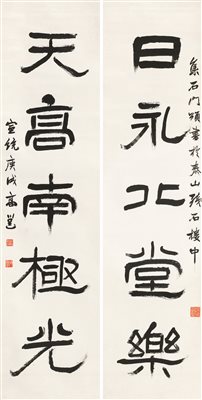 集石門頌書於泰山殘石樓中
日永北堂樂
天高南極光
宣統庚戌高邕